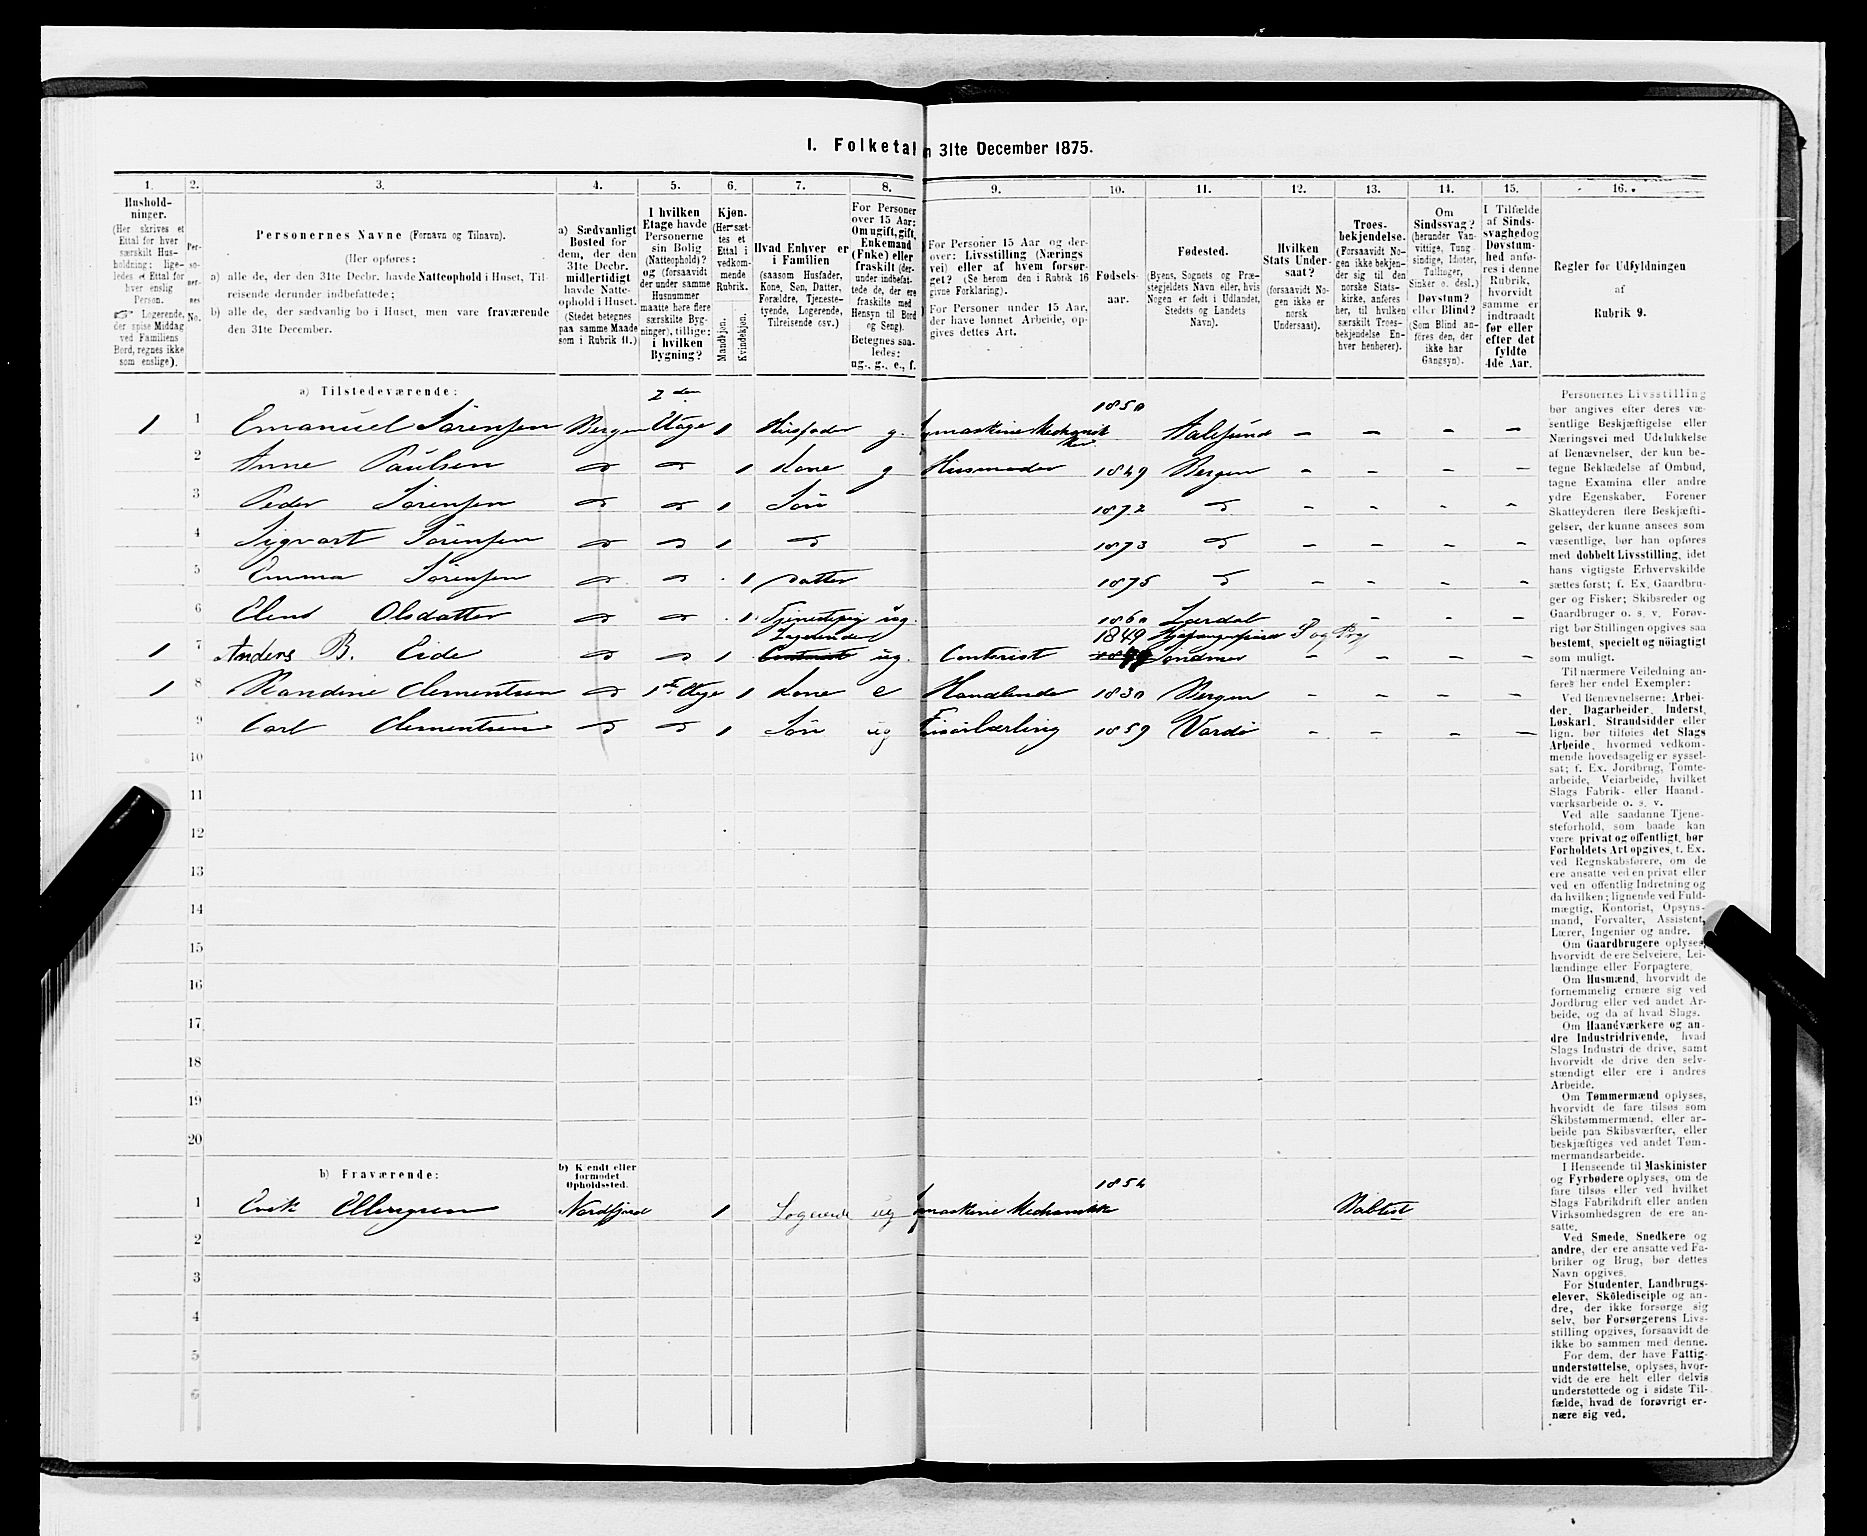 I. Folketal
n 31te December 1875.
1.
2.
3.
4.
5.
6.
7.
8.
9.
10.
11.
12.
13.
14.
15.
16.
Hushold-
ninger.
(Her skrives et
Ettal for hver
særskilt Hus-
holdning; lige-
ledes et Ettal for
hver enslig
Person.
☞ Logerende,
der spise Middag
ved Familiens
Bord, regnes ikke
som enslige).
Per-
so-
ner-
nes
No.
Personernes Navne (Fornavn og Tilnavn).
(Her opføres:
a) alle de, der den 31te Decbr. havde Natteophold i Huset, Til-
reisende derunder indbefattede;
b) alle de, der sædvanlig bo i Huset, men vare fraværende
den 31te December.
a) Sædvanligt
Bosted for
dem, der den
31te Decbr.
midlertidigt
havde Natte-
ophold i Huset.
(Stedet betegnes
paa samme Maade
som i Rubrik 11.)
I hvilken
Etage havde
Personerne
sin Bolig
(Natteophold)?
og (forsaavidt
der under samme
Husnummer
maatte høre flere
særskilte Byg-
ninger), tillige:
i hvilken
Bygning?
Kjøn.
(Her sæt-
tes et
Ettal i
vedkom-
mende
Rubrik.
Mandkjøn.
Kvindekjøn.
Hvad Enhver er
i Familien
(saasom Husfader,
Kone, Søn, Datter,
Forældre, Tjeneste-
tyende, Logerende,
Tilreisende osv.)
For Personer
over 15 Aar:
Om ugift, gift,
Enkemand
(Enke) eller
fraskilt (der-
under indbefat-
tede de, der ere
fraskilte med
Hensyn til Bord
og Seng).
Betegnes saa-
ledes:
ug., g., e., f.
For Personer 15 Aar og der-
over: Livsstilling (Nærings
vei) eller af hvem forsør-
get? (Se herom den i Rubrik 16
givne Forklaring).
For Personer under 15 Aar,
der have lønnet Arbeide, op-
gives dettes Art.
Fødsels-
aar.
Fødested.
(Byens, Sognets og Præ-
stegjeldets Navn eller, hvis
Nogen er født i Udlandet,
Stedets og Landets
Navn).
Hvilken
Stats Under-
saat?
(forsaavidt No-
gen ikke er
norsk
Undersaat).
Troes-
bekjendelse.
(Forsaavidt No-
gen ikke bekjen-
der sig til den
norske Stats-
kirke, anføres
her, til hvilken
særskilt Troes-
bekjendelse En-
hver henhører).
Om
Sindssvag?
(herunder Van-
vittige, Tung
sindige, Idioter,
Tullinger,
Sinker o. desl.)
Døvstum?
eller Blind?
(Som Blind an-
føres den, der
ikke har
Gangsyn).
I Tilfælde
af Sinds-
svaghed og
Døvstum-
hed anfø-
res i denne
Rubrik,
hvorvidt
samme er
indtraadt
før eller
efter det
fyldte
4de Aar.
Regler før Udfyldningen
af
Rubrik 9.
a) Tilstedeværende:
1 1 Emanuel Sørensen Bergen 2den Etage 1 Husfader g. Symaskine Mekaniker 1850 Aalesund – – – –
2 Anne Paulsen do do 1 Kone g Husmoder 1849 Bergen – – – –
3 Peder Sørensen do do 1 Søn 1872 do – – – –
4 Sigvart Sørensen do do 1 do 1873 do – – – –
5 Emma Sørensen do do 1 Datter 1875 do – – – –
6 Olsdatter do do 1 Tjenestepig ug. 1860 Lærdal – – –
1 7 Anders B. Eide do do 1 Logerende ug. Contorist 1849 Søndmør S og Prg – – – –
1 8 Randine Clementsen do 1ste Etage 1 Kone e Handlende 1830 Bergen – – – –
9 Carl Clementsen do do 1 Søn ug Lærling 1859 Vardø – – – –
10
11
12
13
14
15
16
17
18
19
20
b) Fraværende:
b) Kendt eller
formodet
Opholdssted.
1 Erik Nordfjord 1 Logerende ug Symaskine Mekanik 1854 Babtist
2
3
4
5
6
Personernes Livsstilling
bør angives efter deres væ-
sentlige Beskjæftigelse eller
Næringsvei med Udelukkelse
af Benævnelser, der kun be-
tegne Beklædelse af Ombud,
tagne Examina eller andre
ydre Egenskaber. Forener
Skatteyderen flere Beskjæfti-
gelser, der kunne ansees som
væsentlige, bør han opføres
med dobbelt Livsstilling, idet
hans vigtigste Erhvervskilde
sættes først; f. Ex. Gaardbru-
ger og Fisker; Skibsreder og
Gaardbruger o. s. v. Forøv-
rigt bør Stillingen opgives saa
bestemt, specielt og nöiagtigt
som muligt.
Til nærmere Veiledning an-
føres her endel Exempler:
Ved Benævnelserne: Arbei-
der, Dagarbeider, Inderst,
Løskarl, Strandsidder eller
lign. bør tilføies det Slags
Arbeide, hvormed vedkom-
mende hovedsagelig er syssel-
sat; f. Ex. Jordbrug, Tomte-
arbeide, Veiarbeide, hvilket
Slags Fabrik- eller Haand-
værksarbeide o. s. v.
Ved alle saadanne Tjene-
steforhold, som baade kan
være privat og offentligt, bør
Forholdets Art opgives, f. Ex.
ved Regnskabsførere, om de
ere ansatte ved en privat eller
ved en offentlig Indretning og
da hvilken; lignende ved Fuld-
mægtig, Kontorist, Opsyns-
mand, Forvalter, Assistent,
Lærer, Ingeniør og andre.
Om Gaardbrugere oplyses,
hvorvidt de ere Selveiere, Lei-
lændinge eller Forpagtere.
Om Husmænd, hvorvidt de
fornemmelig ernære sig ved
Jordbrug eller ved andet Ar-
beide, og da af hvad Slags.
Om Haandværkere og an-
dre Industridrivende, hvad
Slags Industri de drive, samt
hvorvidt de drive den selv-
stændigt eller ere i andres
Arbeide.
Om Tømmermænd oplyses,
hvorvidt de fare tilsøs som
Skibstømmermænd, eller ar-
beide paa Skibsværfter, eller
beskjæftiges ved andet Tøm-
mermandsarbeide.
I Henseende til Maskinister
og Fyrbødere oplyses, om de
fare tilsøs eller ved hvilket
Slags Fabrikdrift eller anden
Virksomhedsgren de ere an-
satte.
Ved Smede, Snedkere og
andre, der ere ansatte ved Fa-
briker og Brug, bør dettes
Navn opgives.
For Studenter, Landbrugs-
elever, Skoledisciple og an-
dre, der ikke forsørge sig
selv, bør Forsørgerens Livs-
stilling opgives, forsaavidt de
ikke bo sammen med denne.
For dem, der have Fattig-
understøttelse, oplyses, hvor-
vidt de ere helt eller delvis
understøttede og i sidste Til-
fælde, hvad de forøvrigt er-
nære sig ved.